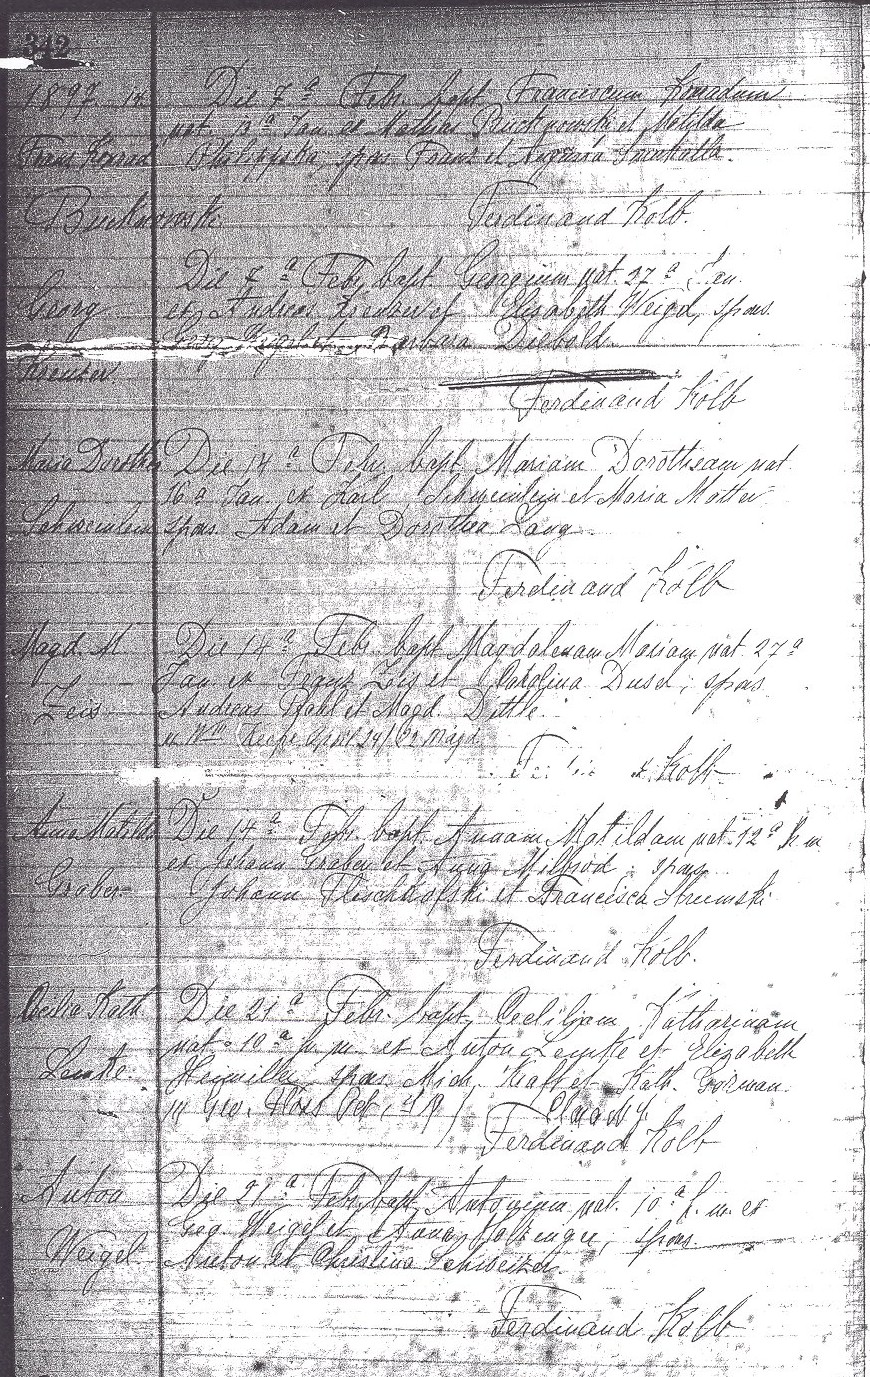 342
1897 14 Die 7ª Febr. bapt Franciscum Konradum
nat. 13ª Jan ex Mathias Buchnowski et Matilda
Franz Konrad spons. Franz et
Buchnowski Ferdinand Kolb.
Die 8ª Feb, bapt. Georgium nat. 27ª Jan.
Georg ex Andreas Kreuzer et Elisabeth Weigel, spons.
Georg et Barbara Diebold
Kreuzer.
Ferdinand Kolb
Maria Dorothea Die 14ª Febr. bapt. Mariam Dorotheam nat
16ª Jan. ex Karl Schwemlein et Maria Motter
Schwemlein spons. Adam et Dorothea Lang.
Ferdinand Kolb
Magd. M Die 14ª Febr. bapt Magdalenam Mariam nat. 27ª
Jan ex Franz Zeis et Carolina Dusel; spons
Zeis Andreas et Magd. Dittle.
m Wm
Kolb
Anna Matilda Die 14ª Febr. bapt. Annam Matildam nat. 12ª h m
ex Johann Graber et Anna spons
Graber Johann et Francisca
Ferdinand Kolb.
Cecilia Kath. Die 21ª Febr. bapt, Ceciliam Katharinam
nat. 10ª h. m. ex Anton Lemke et Elizabeth
Lemke. spons. Mich. et Kath. Gorman.
m Geo.
Ferdinand Kolb
Anton Die 21ª Febr. bapt, Antonium nat. 10ª h. m. ex
Geo. Weigel et Anna spons.
Weigel Anton et Christina Schweitzer.
Ferdinand Kolb